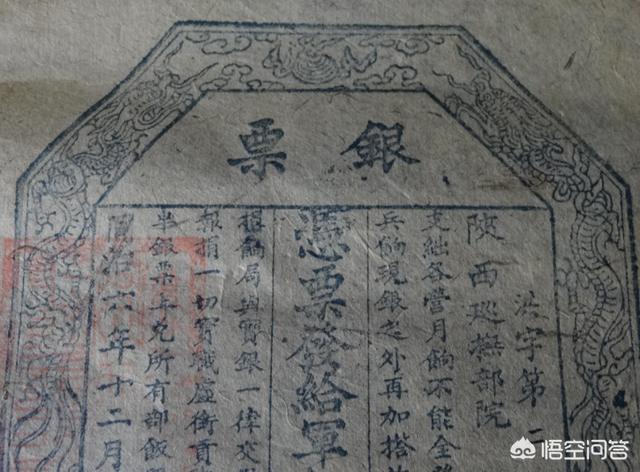 銀票
洪字第二
陝西巡撫部院
支絀各營月餉不能全發
兵餉現銀之外再加搭
憑票發給軍
糧餉局與實銀一律交
報捐一切實職虛銜貢
半銀票上兌所有部飯
同治六年十二月
悟空问答